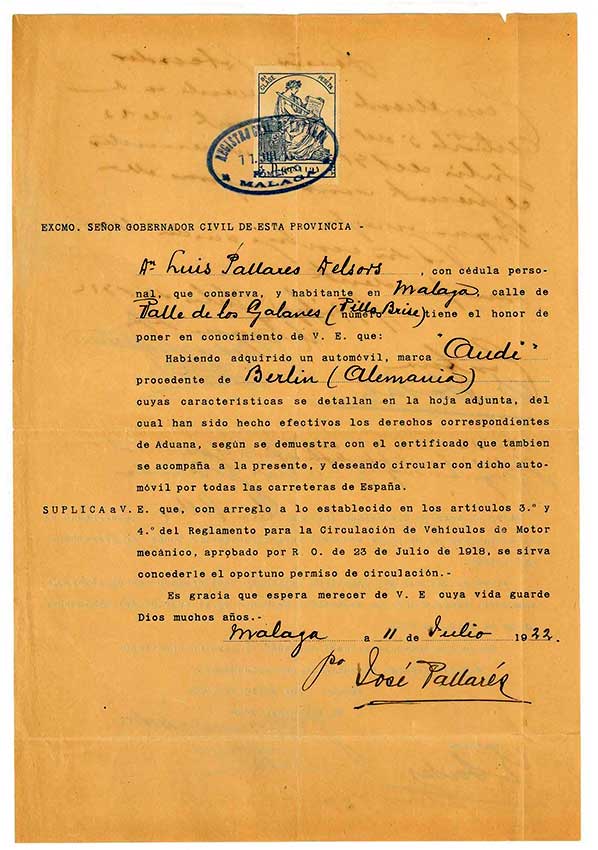 8ª CLASE 1 PESETA
REGISTRO GRAL DE ENTRADA
11 JUL
FOMENTO
MALAGA
EXCMO. SEÑOR GOBERNADOR CIVIL DE ESTA PROVINCIA -
Dn Luis Pallares Delsors, con cédula perso-
nal, que conserva, y habitante en Malaga, calle de
Valle de los Galanes (Villa Brise) número tiene el honor de
poner en conocimiento de V. E. que:
Habiendo adquirido un automóvil, marca "Audi"
procedente de Berlin (Alemania)
cuyas características se detallan en la hoja adjunta, del
cual han sido hecho efectivos los derechos correspondientes
de Aduana, según se demuestra con el certificado que tambien
se acompaña a la presente, y deseando circular con dicho auto-
móvil por todas las carreteras de España.
SUPLICA a V. E. que, con arreglo a lo establecido en los artículos 3.º y
4.º del Reglamento para la Circulación de Vehículos de Motor
mecánico, aprobado por R O. de 23 de Julio de 1918, se sirva
concederle el oportuno permiso de circulación.-
Es gracia que espera merecer de V. E cuya vida guarde
Dios muchos años.-
Malaga a 11 de Julio 1922.
po
José Pallarés